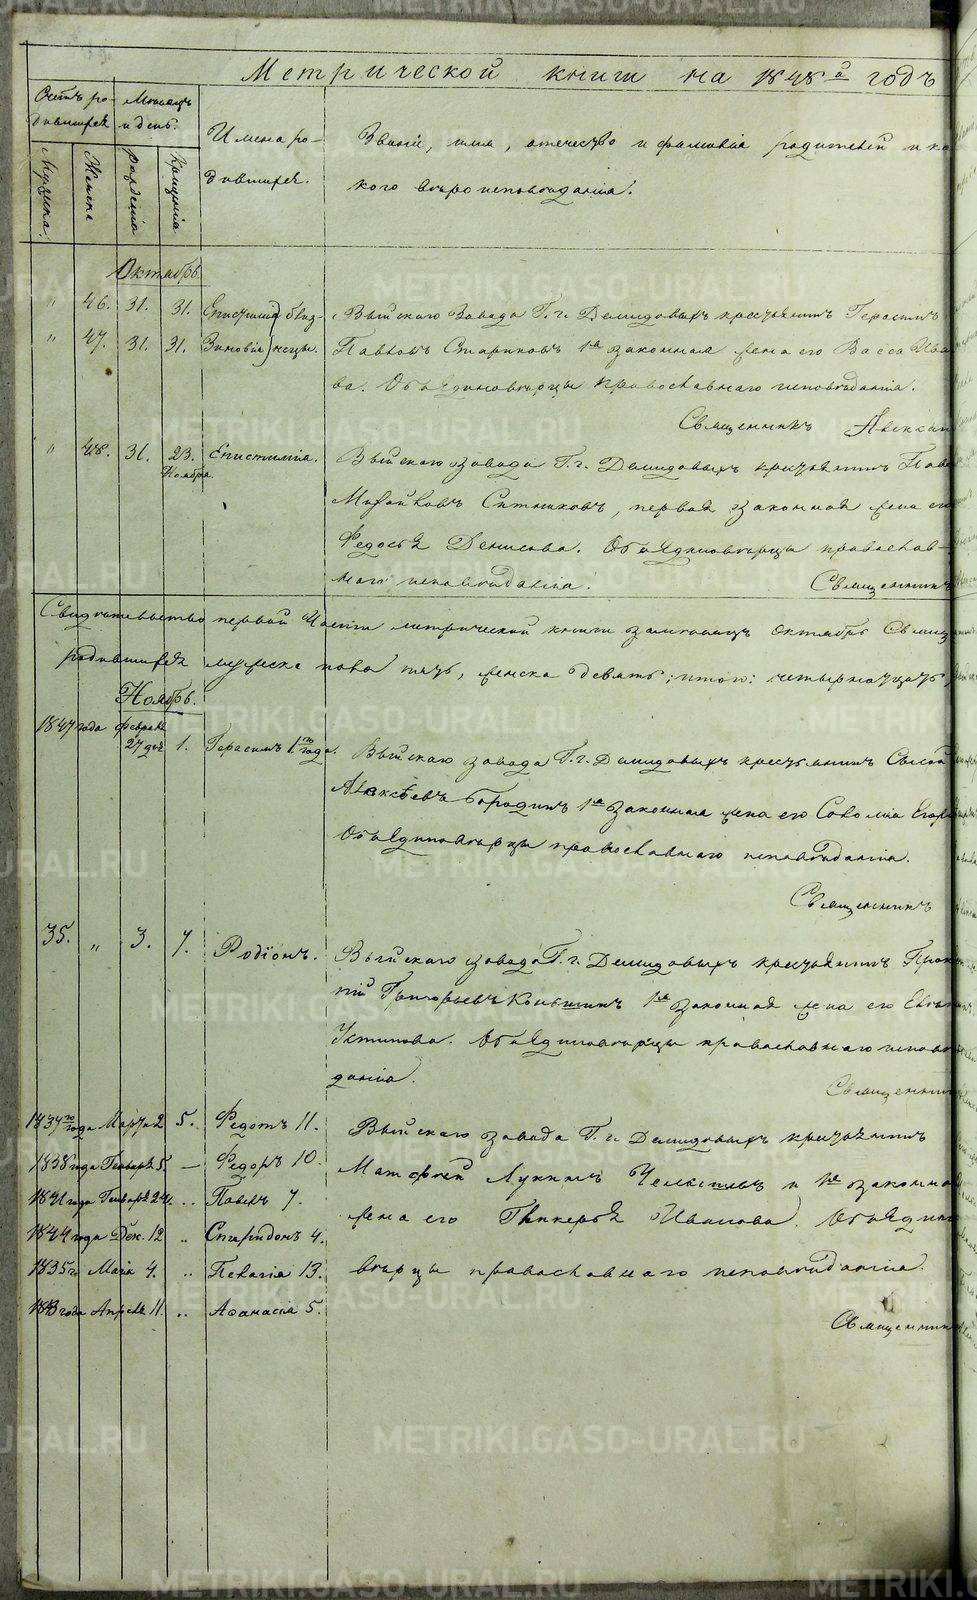 Метрической книги на 1848й годъ
Счетъ ро- Месяцъ
дившихся и день.
Имена ро-
дившихся.
Званiе, имя, отечество и фамилiя родителей и ка
кого вероисповеданiя.
Мужска.
Женска
Рожденiя
Крещенiя
Октябрь.
" 46. 31. 31. Епистимiя близ-
Выйскаго Завода Г. г. Демидовыхъ крестьянинъ Герасимъ
" 47. 31. 31. Зиновiя нецы.
Павловъ Стариковъ 1я законная жена его Васса Ива
ва. Оба Единоверцы православнаго исповеданiя.
Священникъ Алексан
" 48. 31. 23. Епистимiя.
Ноября.
Выйскаго завода Г. г. Демидовыхъ крестьянинъ Паве
Михайловъ Ситниковъ, первая законная жена ег
Федосья Денисова. Оба Единоверцы православ-
наго исповеданiя. Священникъ
Свидетельство первой части метрической книги за месяцъ Октябрь Свящ
родившихся мужеска пола пять, женска девять; итого: четырнадцать
Ноябрь.
1847 года Февраля
27 дня 1. Герасимъ 1го года.
Выйскаго завода Г. г. Демидовыхъ крестьянинъ Сысой
Алексеевъ Бородинъ 1я законная жена его Соломiя Егор
Оба Единоверцы православнаго исповеданiя.
Священникъ
35. " 3. 7. Родiонъ.
Выйскаго завода Г. г. Демидовыхъ крестьянинъ Прок
пiй Григорьевъ 1я законная жена его
Устинова. Оба Единоверцы православнаго испове
данiя.
Священник
1837го года Марта 2 5. Федотъ 11.
Выйскаго завода Г. г. Демидовыхъ крестьянинъ
1838 года Генваря 5. — Федоръ 10.
Матфей Лукинъ и 1я законна
1841 года Генваря 24. „ Павелъ 7.
жена его Гликерья Иванова. Оба Един
1844 года Дек. 12 „ Спиридонъ 4.
1835 г. Маiя 4. „ Пелагiя 13.
верцы православнаго исповеданiя.
1843 года Апреля 11. „ Афанасiя 5.
Священник
METRIKI.GASO-URAL.RU